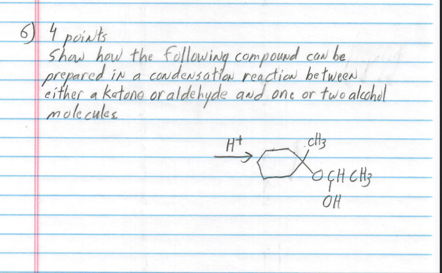 6) 4 points
Show how the following compound can be
prepared in a condensation reaction between
either a ketone or aldehyde and one or two alcohol
molecules
H+
CH3
OCHCH3
OH